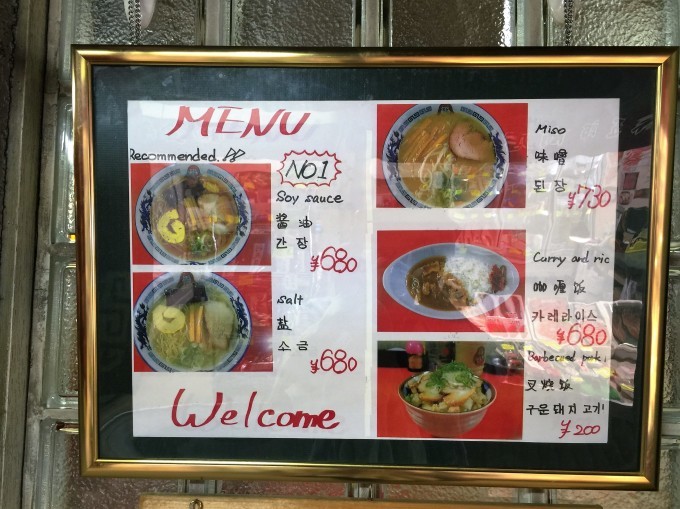 MENU
Recommended.
NO1
Soy sauce
醤油
간장
¥680
salt
盐
소금
¥680
Welcome
Miso
味噌
된장
¥730
Curry and ric
咖喱饭
카레라이스
¥680
Barbecued pork
叉烧飯
구운돼지고기
¥200